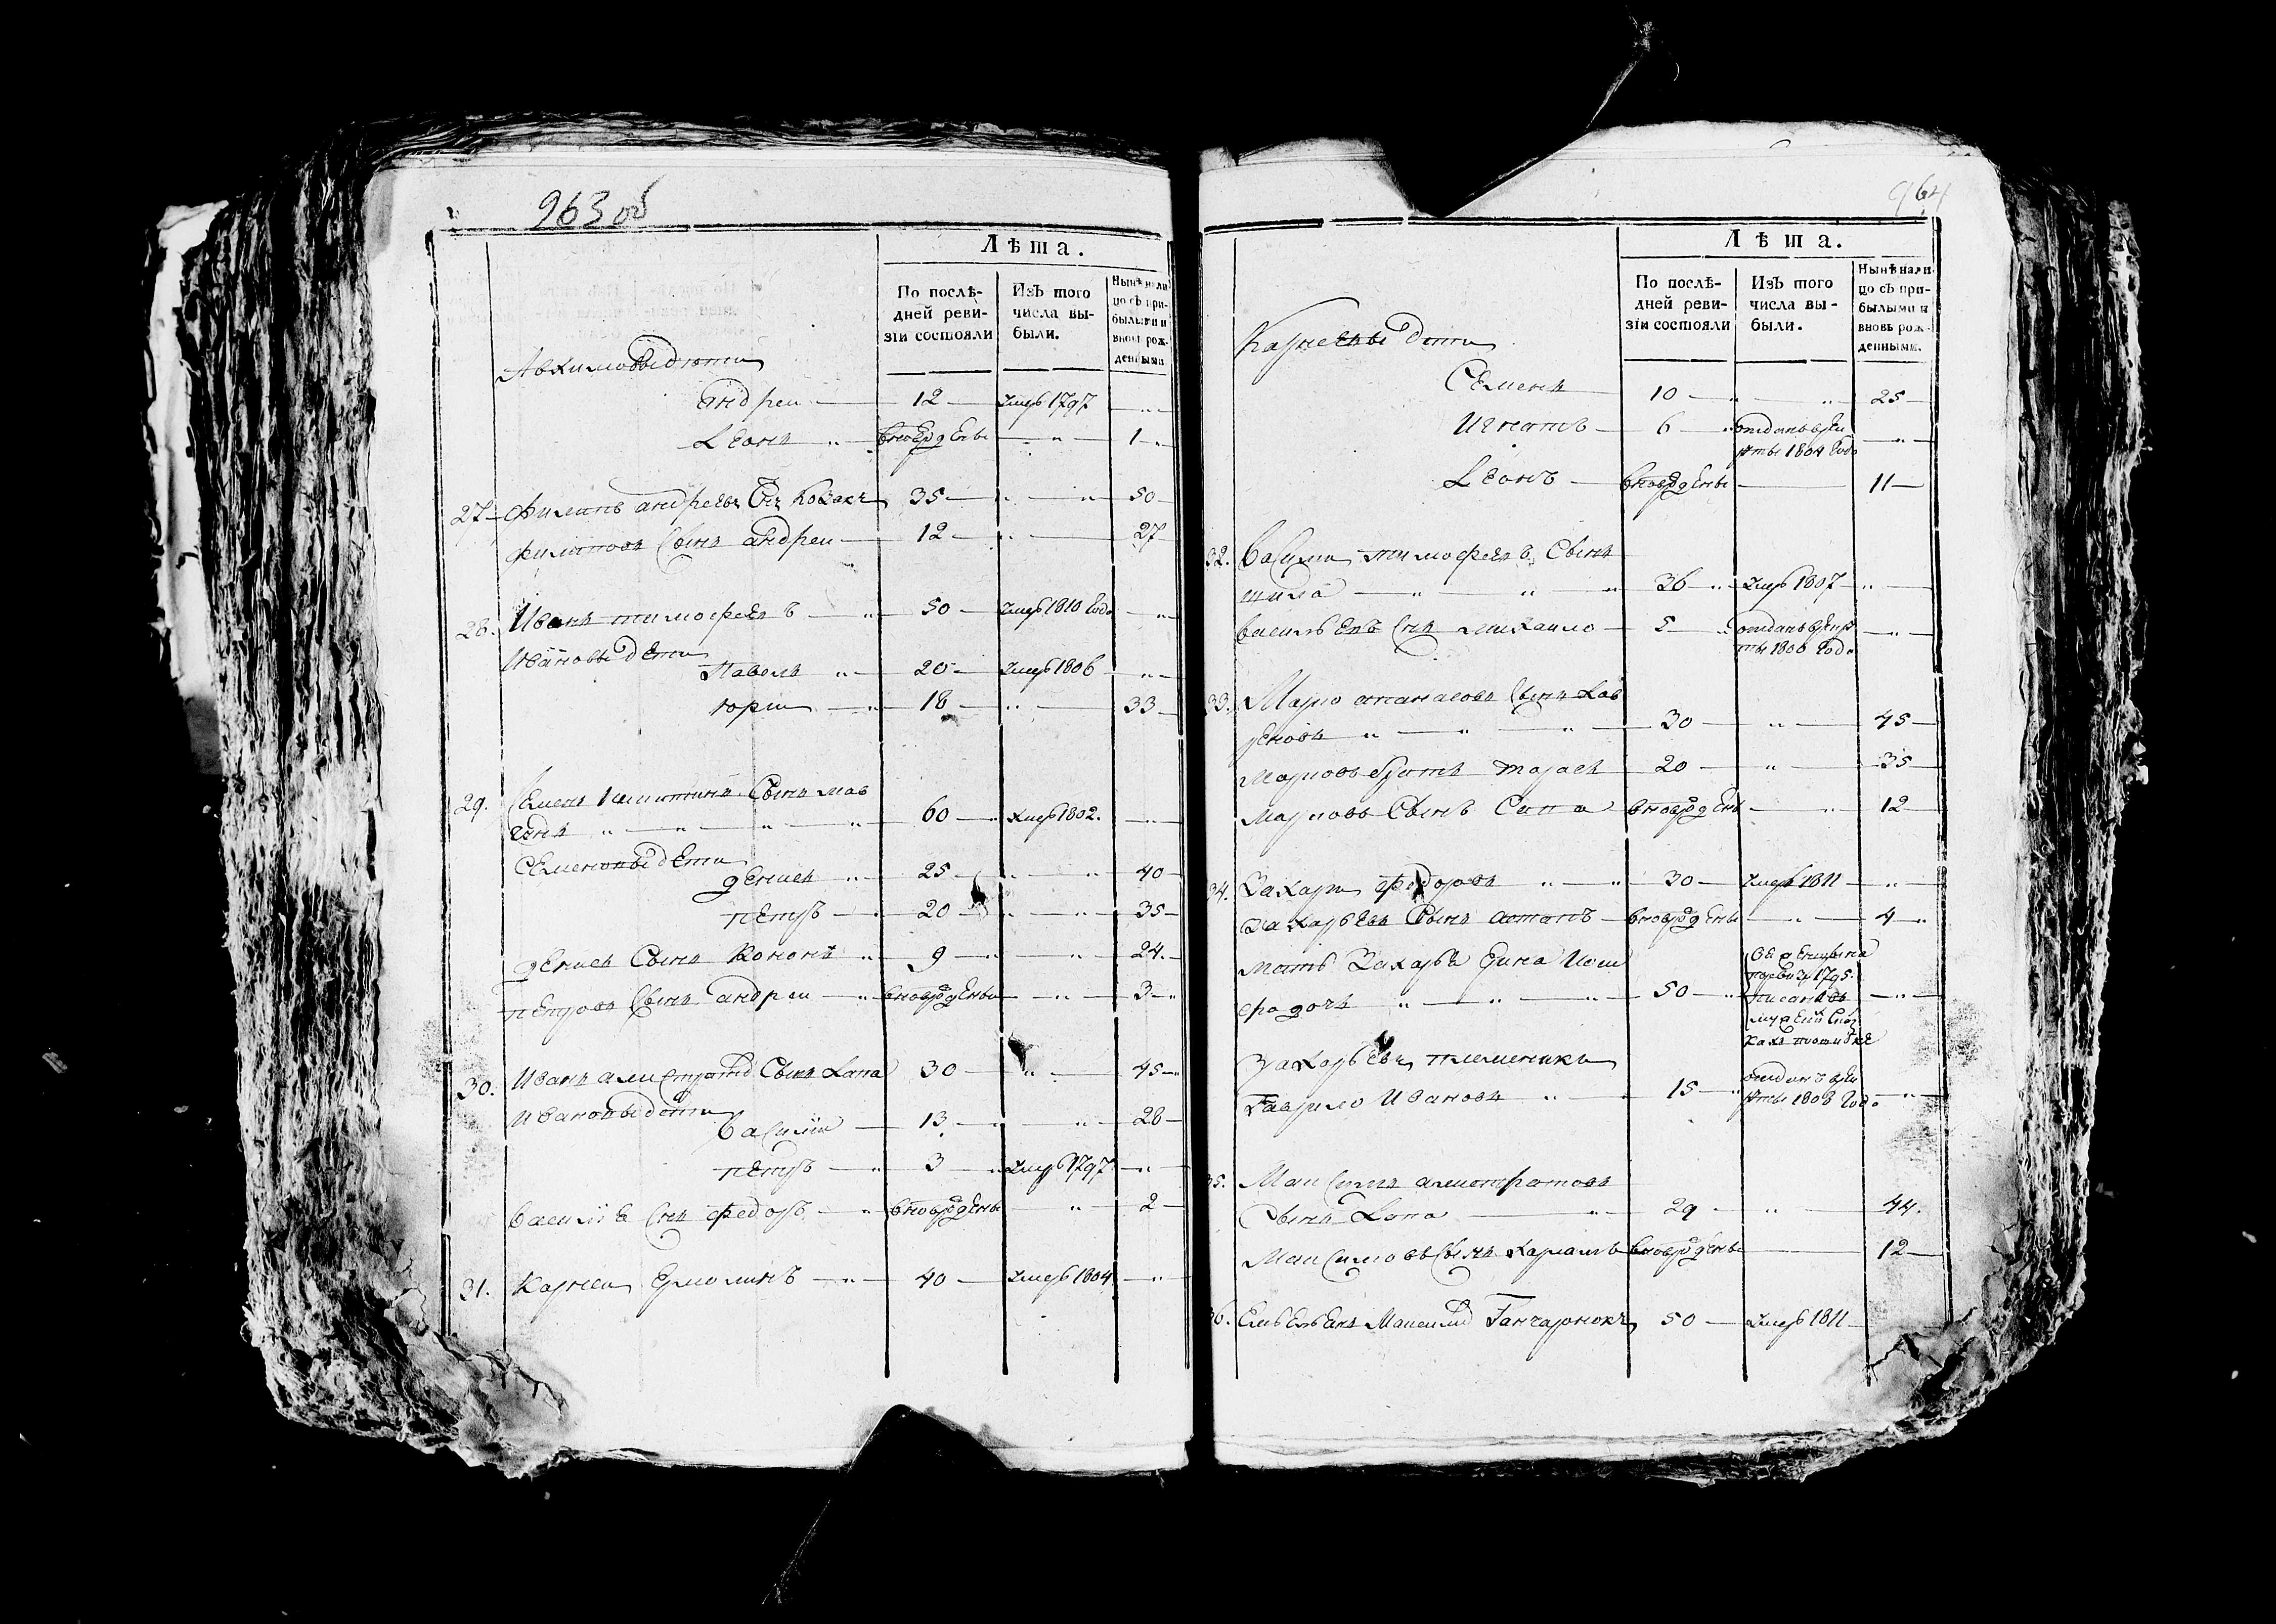 963 об
Лѣта.
По послѣ-
дней реви-
зіи состояли
Изъ того
числа вы-
были.
Нынѣ нали
цо съ при-
былыми и
вновь рож-
денными.
Авхимовы дети
андреи 12 умеръ 1797
Леонъ вновроденъ 1
27 Филипъ андреевъ Снъ Козакъ 35 50
Филиповъ Сынъ андреи 12 27
28. Иванъ тимофеевъ 50 умеръ 1810 года
Ивановы дети
Павелъ 20 умеръ 1806
юрии 18 33
29. Семенъ Сынъ
60 умеръ 1802.
Семеновы дети
денисъ 25 40
петръ 20 35
денисъ Сынъ Кононъ 9 24.
петровъ Сынъ андреи вновроденъ 3
30. Иванъ Сынъ Лапа 30 45
Ивановы дети
Василии 13 28
петръ 3 умеръ 1797
василіе Снъ Федоръ вновроденъ 2
31. Карнеи Ермолинъ 40 умеръ 1804
964
Лѣта.
По послѣ-
дней реви-
зіи состояли
Изъ того
числа вы-
были.
Нынѣ нали
цо съ при-
былыми и
вновь рож-
денными.
Карнеевы дети
Семенъ 10 25
Игнатъ 6 отданъ врек
руты 1804 Года
Леонъ вновроденъ 11
32. Василии тимофеевъ Сынъ
шила 36 умеръ 1807
васильевъ Снъ михаило 5 отданъ врекр
ты 1808 Года
33. Марко апанасовъ Сынъ Лав
реновъ 30 45
Марковъ братъ тарасъ 20 35
Марковъ Сынъ Сапа вновроденъ 12
34. Захари Федоровъ 30 умеръ 1811
захарьевъ Сынъ астапъ вновроденъ 4
мать Захарьа
50
1795.
писанавъ
Захарьевъ племеникъ
Гаврило Ивановъ 15 отданъ врек
руты 1808 Года
35. Максимъ алистратовъ
Сынъ Лапа 29 44.
Максимовъ Сынъ вновроденъ 12
36. Емельянъ Ганчарюкъ 50 умеръ 1811